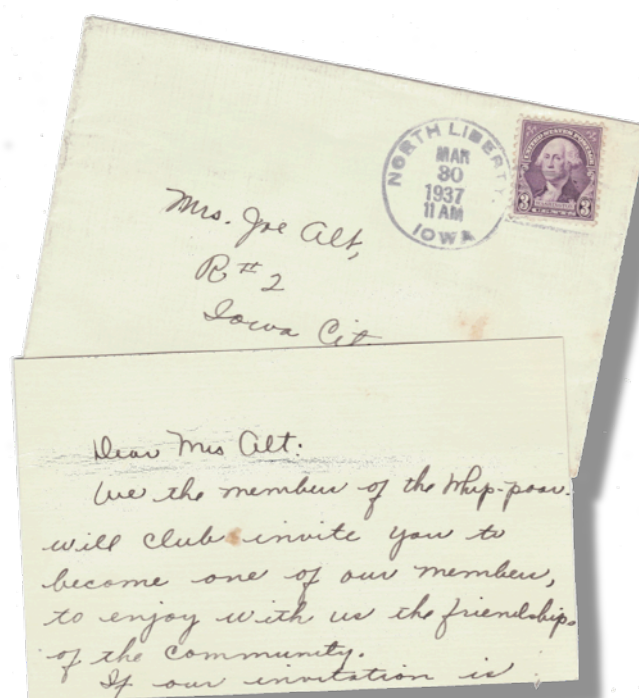 NORTH LIBERTY,
MAR
30
1937
11 AM
IOWA
UNITED STATES POSTAGE
3 CENTS 3
Mrs. Joe Alt,
R # 2
Iowa Cit
Dear Mrs Alt:
We the members of the Whip-poor-
will club invite you to
become one of our members,
to enjoy with us the friendships
of the community.
If our invitation is